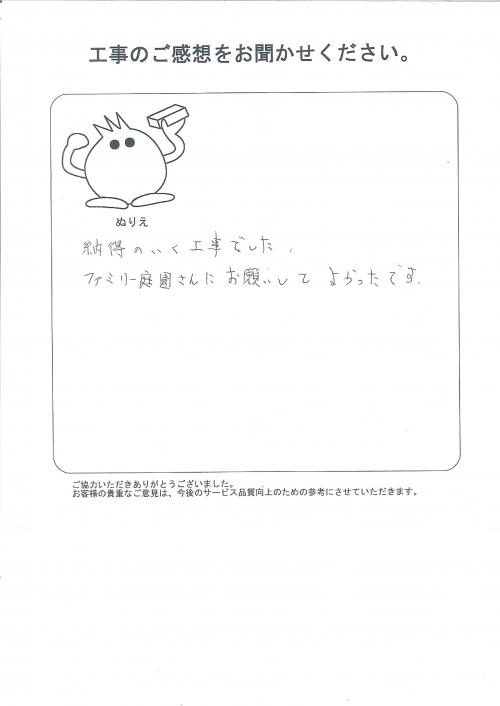 工事のご感想をお聞かせください。
ぬりえ
納得のいく工事でした。
ファミリー庭園さんにお願いして よかったです。
ご協力いただきありがとうございました。
お客様の貴重なご意見は、今後のサービス品質向上のための参考にさせていただきます。